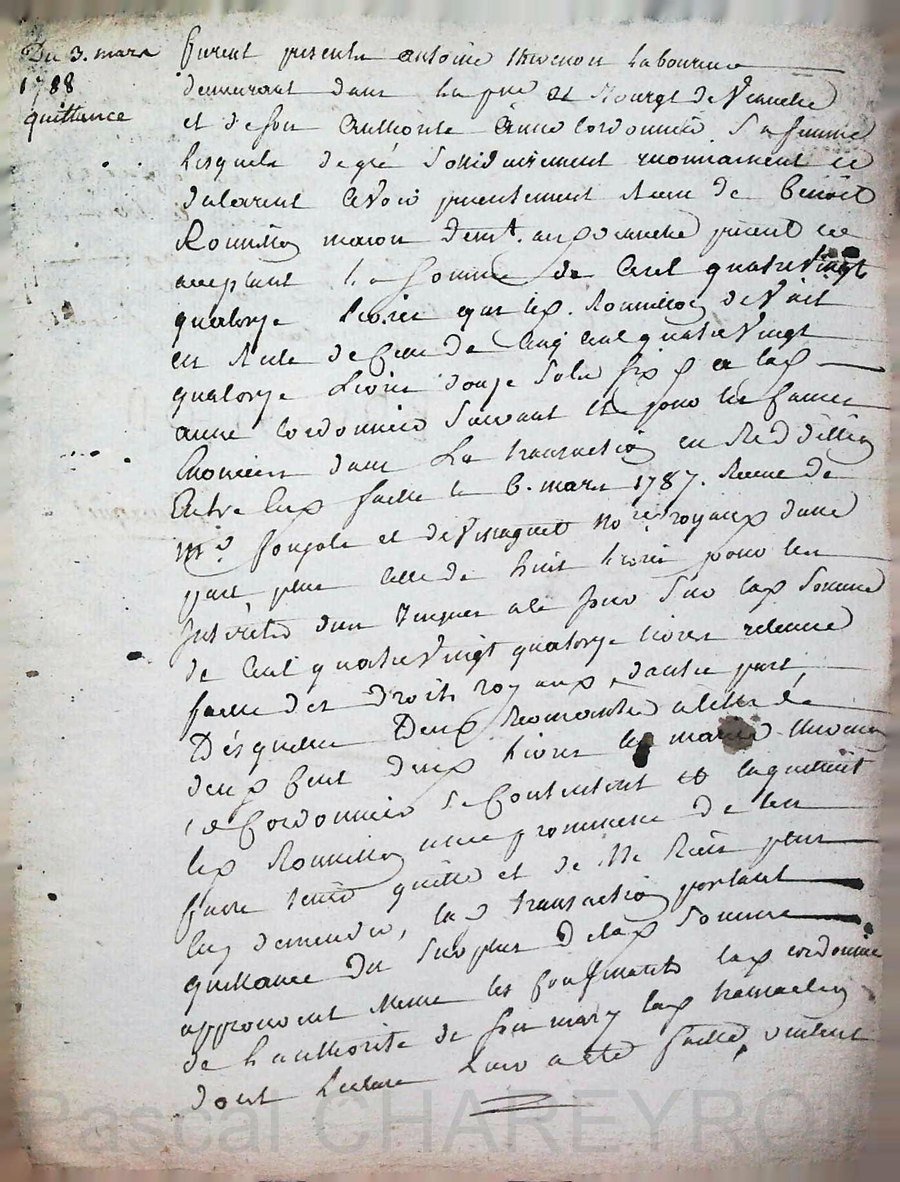 Du 3. mars
1788
quittance
furent presents antoine thevenon laboureur
demeurant dans la et Bourg de Vranche
et de son authorité anne Cordonnier sa femme
lesquels de gré solidairement reconnaissent et
declarent avoir presentement Receu de Benoit
Roumillon macon demt. present et
acceptant la somme de Cent quatre vingt
quatorze livres que led. Roumillon devait
en Reste de celle de Cinq Cent quatre vingt
quatorze Livres douze sols six d a lad
anne Cordonnier suivant et pour les causes
Enoncées dans La transaction en Reddition
Entre Eux faitte le 6. mars 1787. Receue de
Me. et de notres. royaux d'une
part plus celle de huit livres pour les
Interets d'un a ce jour sur lad somme
de Cent quatre vingt quatorze livres retenue
faitte des Droits royaux, d'autre part,
Desquelles Deux sommes
deux Cent deux Livres les mariés thevenon
et Cordonnier se Contentent et l'aquittent
led Roumillon avec promesse de l'en
faire tenir quitte et de ne Rien plus
luy demander, lad transaction portant
quittance du surplus de lad somme
approuvent meme les Confinants lad cordonnier
de l'authorité de son mary lad transaction
dont lecture leur a été faitte, veulent
Pascal CHAREYRON